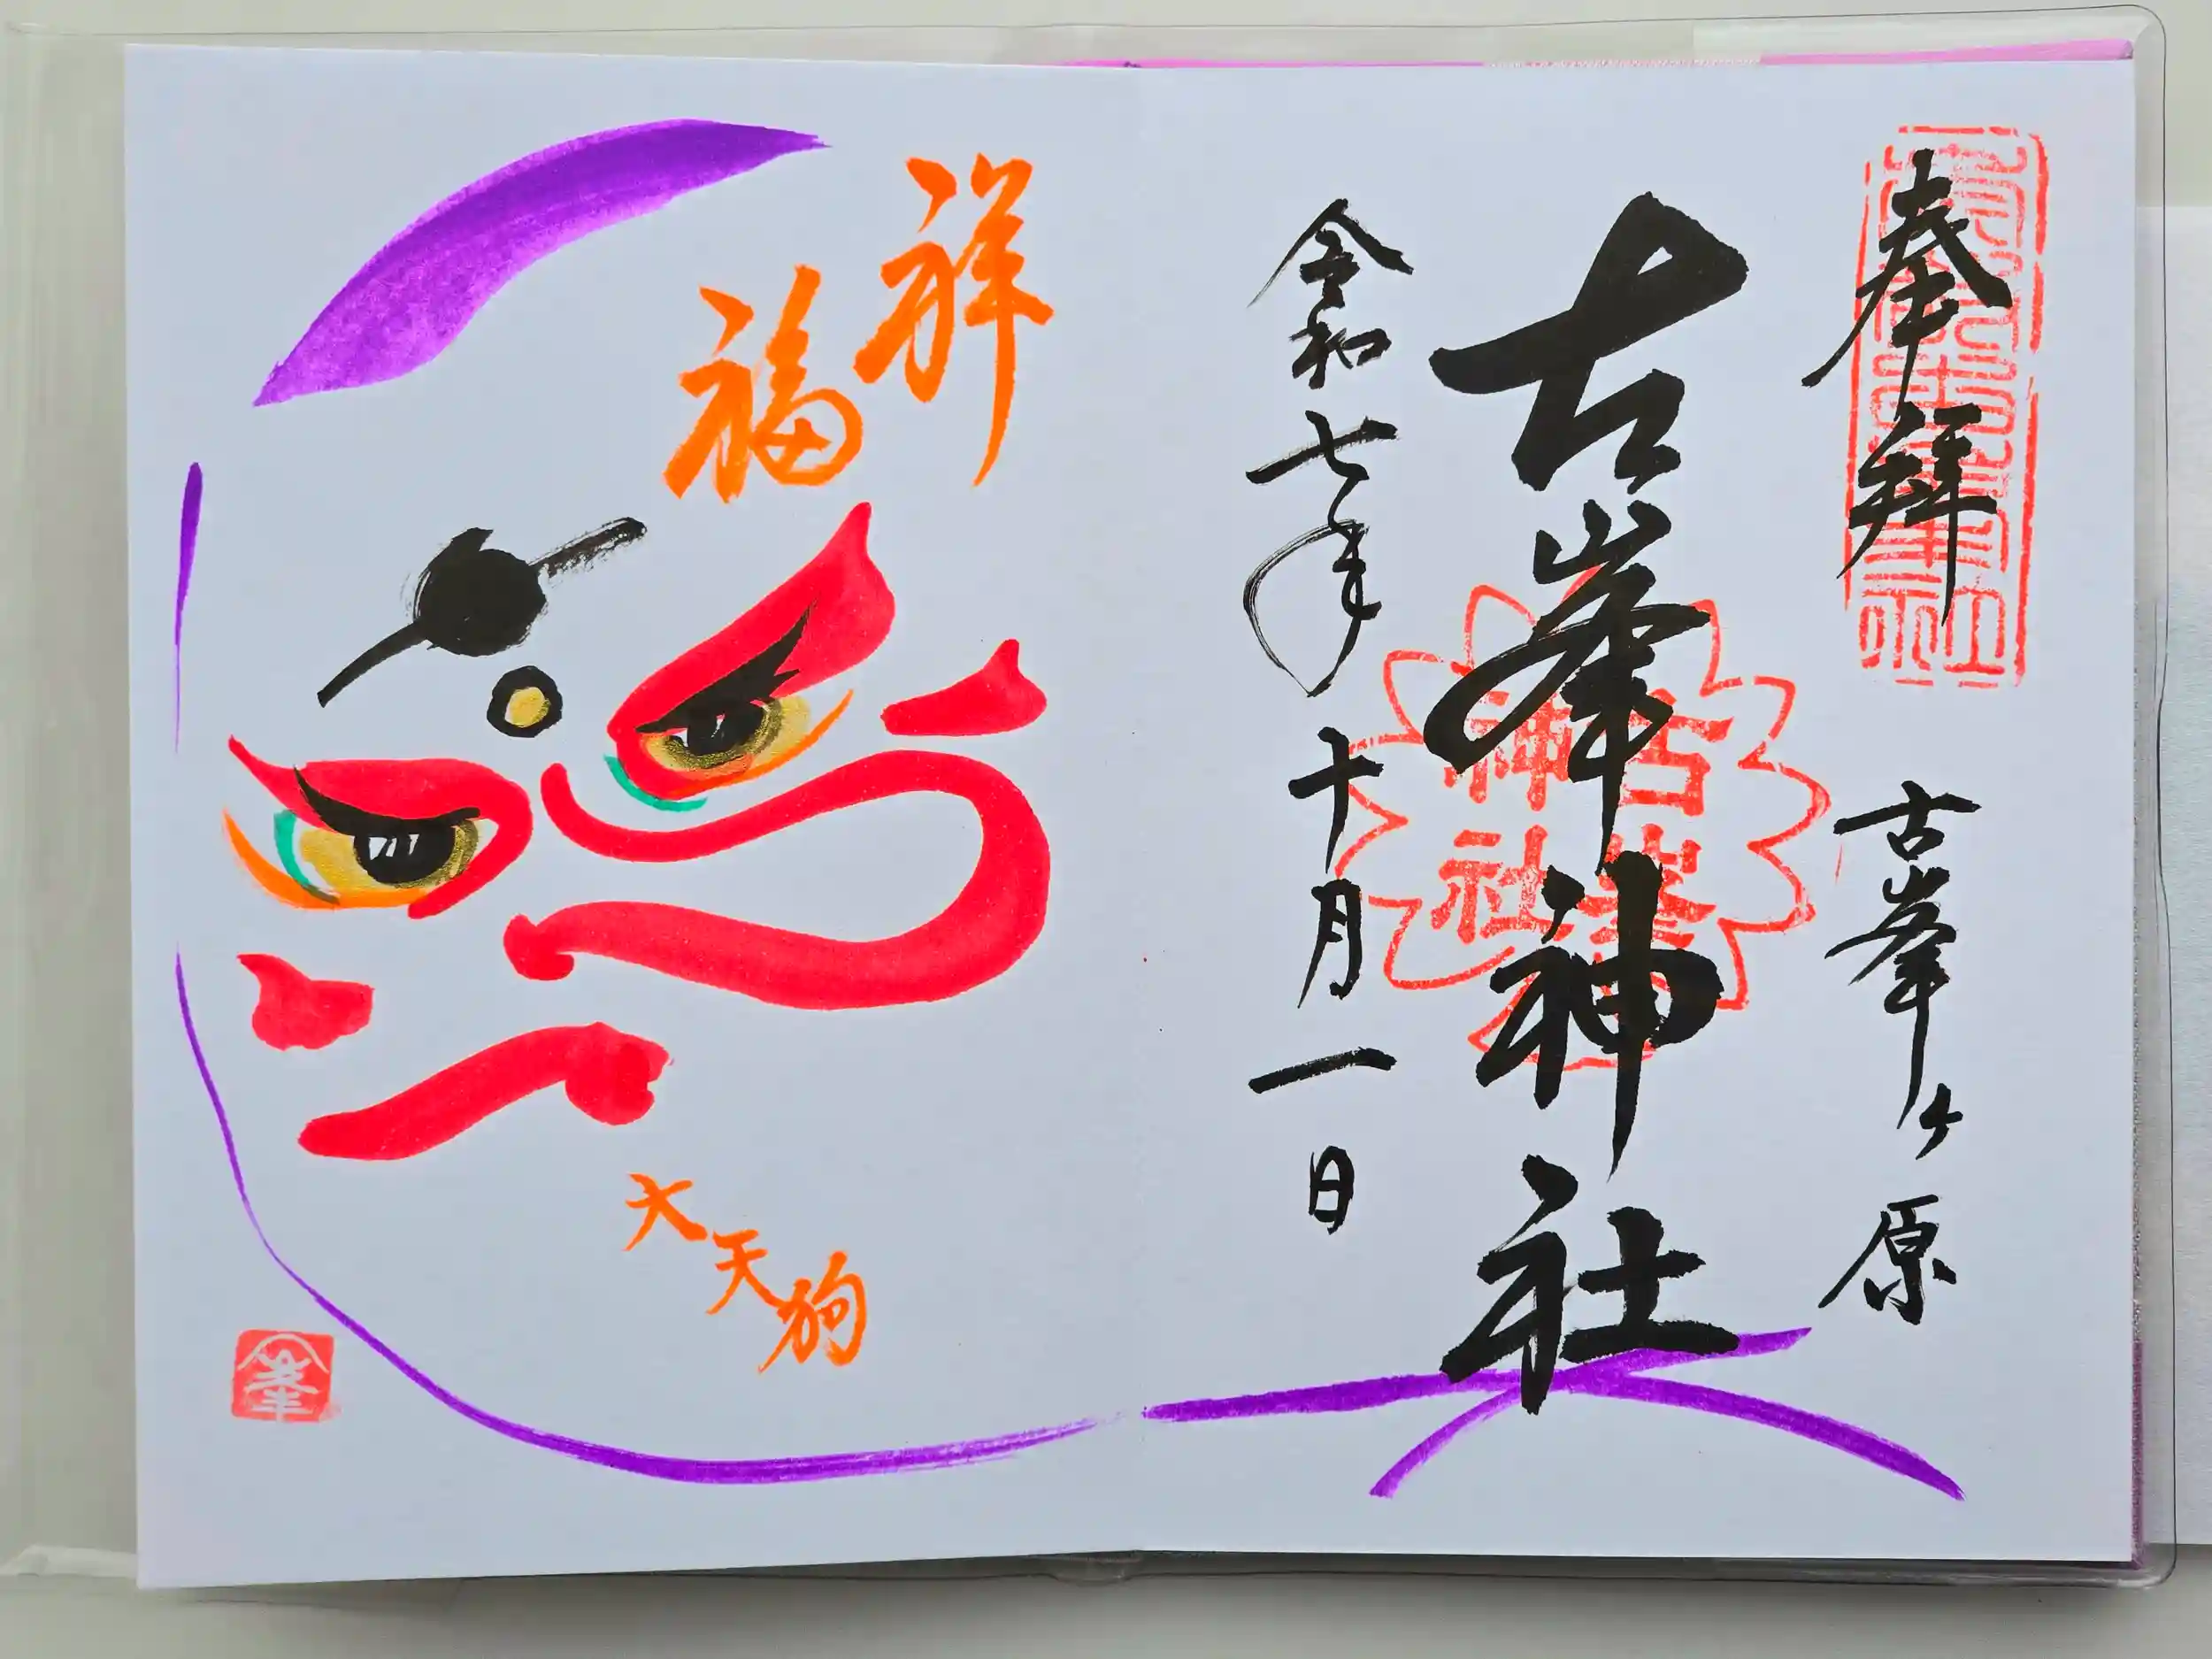 奉拝
古峯ヶ原
古峯神社
古峯
神社
令和七年十月一日
祥福
大天狗
峯